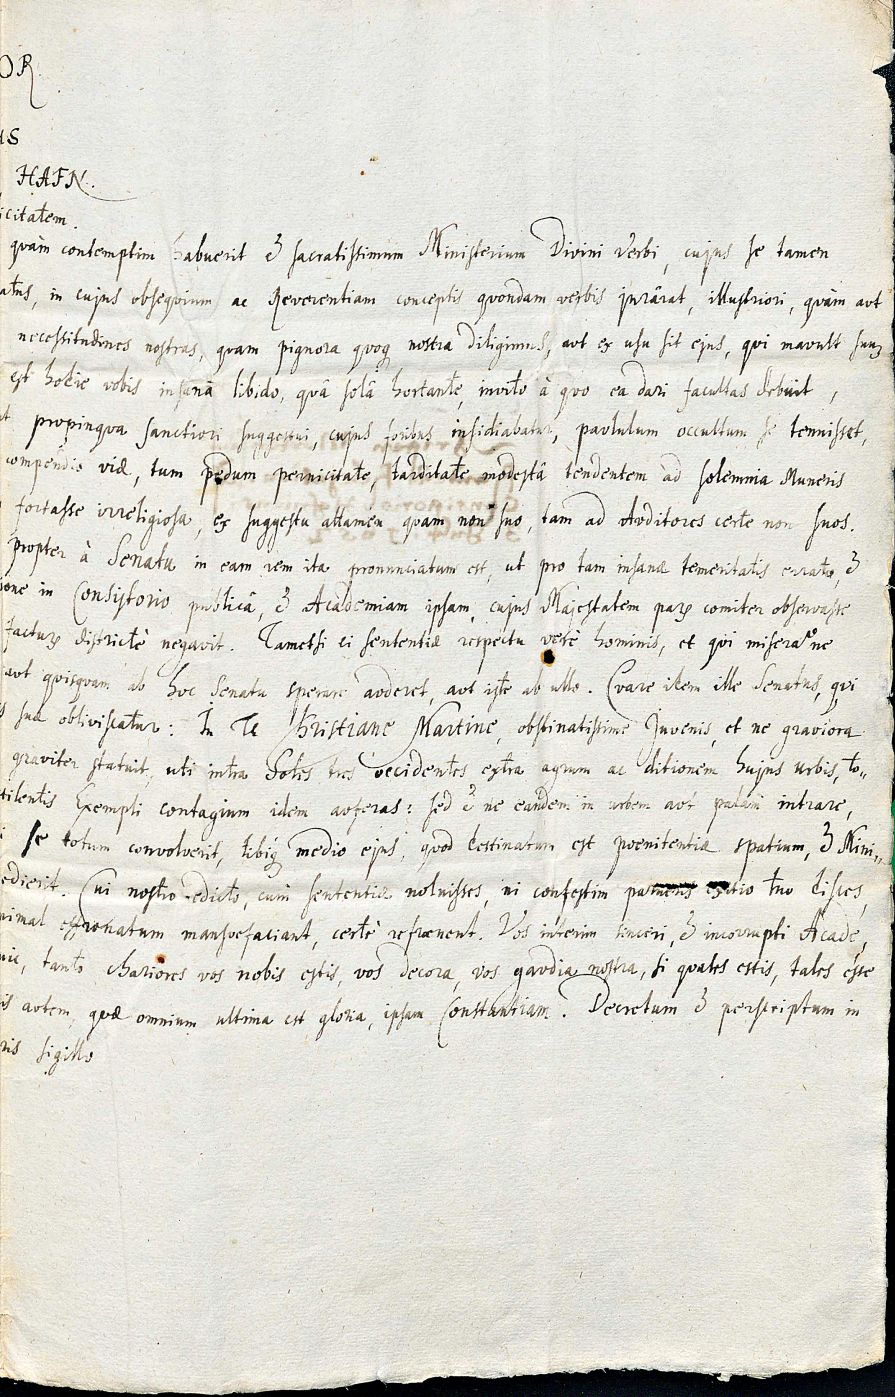 OR.
US
HAFN.
icitatem.
quàm contemptim habuerit & sacratissimum Ministerium Divini Verbi, cujus se tamen
atus, in cujus obsequium ac Reverentiam conceptis quondam verbis jurârat, illustriori, quàm aut
necessitudines nostras, quam pignora quoq nostra diligimus, aut ex usu sit ejus, qui mavult suuz
est hodie vobis insanâ libido, quâ solâ hortante, invito à quo ea dari facultas debuit,
ut propinqua sanctiori suggestui, cujus foribus insidiabatur, paululum occultum se tenuisset,
compendio viæ, tum pedum pernicitate, tarditate modestâ tendentem ad solemnia Muneris
fortasse irreligiosa, ex suggestu attamen quam non suo, tam ad Auditores certe non suos.
propter à Senatu in eam rem ita pronunciatum est, ut pro tam insanæ temeritatis errato, &
ione in Consistorio publicâ, & Academiam ipsam, cujus Majestatem parz comiter observasse
facturz districtè negavit. Tametsi ei sententiæ respectu verè hominis, et qui miserâone
aut quisquam ab hoc Senatu sperare auderet, aut iste ab ullo. Quare idem ille Senatus, qui
suæ obliviscatur: In Te Christiane Martine, obstinatissime Juvenis, et ne graviora
graviter statuit, uti intra Soles tres occidentes extra agrum ac ditionem hujus urbis, to-
stilentis Exempli contagium idem auferas: sed & ne eandem in urbem aut palàm intrare,
se totum convolverit, tibiq medio ejus, quod destinatum est poenitentiæ spatium, & Mini-
edierit. Cui nostro edicto, cum sententiæ noluisses, ni confestim parueris exitio tuo disces,
nimal effrænatum mansuefaciant, certè refrænent. Vos interim sinceri, & incorrupti Acade,
mie, tanto chariores vos nobis estis, vos decora, vos gaudia nostra, si quales estis, tales esse
is autem, quæ omnium ultima est gloria, ipsam Constantiam. Decretum & perscriptum in
ris sigillo